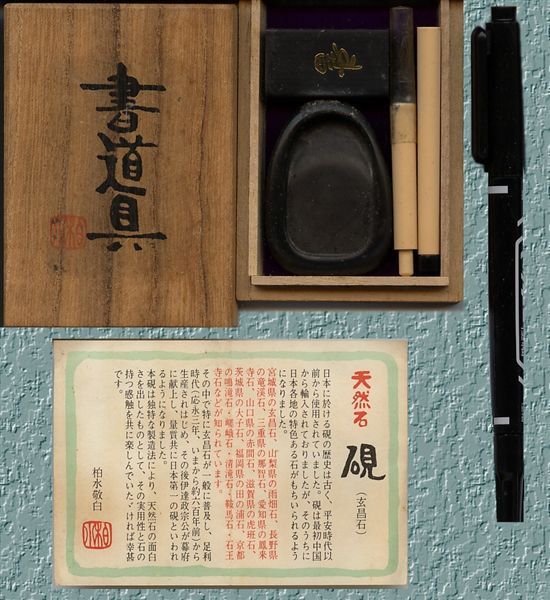 書道具
天然石
硯
(玄昌石)
日本に於ける硯の歴史は古く、平安時代以
前から使用されていました。硯は最初中国
から輸入されておりましたが、そのうちに
日本各地の特色ある石がもちいられるよう
になりました。
宮城県の玄昌石、山梨県の雨畑石、長野県
の竜渓石、三重県の那智石、愛知県の鳳来
寺石、山口県の赤間石、滋賀県の虎斑石、
茨城県の大子石、福岡県の田の浦石、京都
の鳴滝石・嵯峨石・清滝石・鞍馬石・石王
寺石などが知られています。
その中で特に玄昌石が一般に普及し、足利
時代(応永二年、いまから約六百年前)から
生産されはじめ、その後伊達政宗公が幕府
に献上し、量質共に日本第一の硯といわれ
るようになりました。
本硯は独特な製造法により、天然石の面白
さを出したものとして、その実用性と石の
持つ感触を共に楽しんでいたゞければ幸甚
です。
柏水敬白